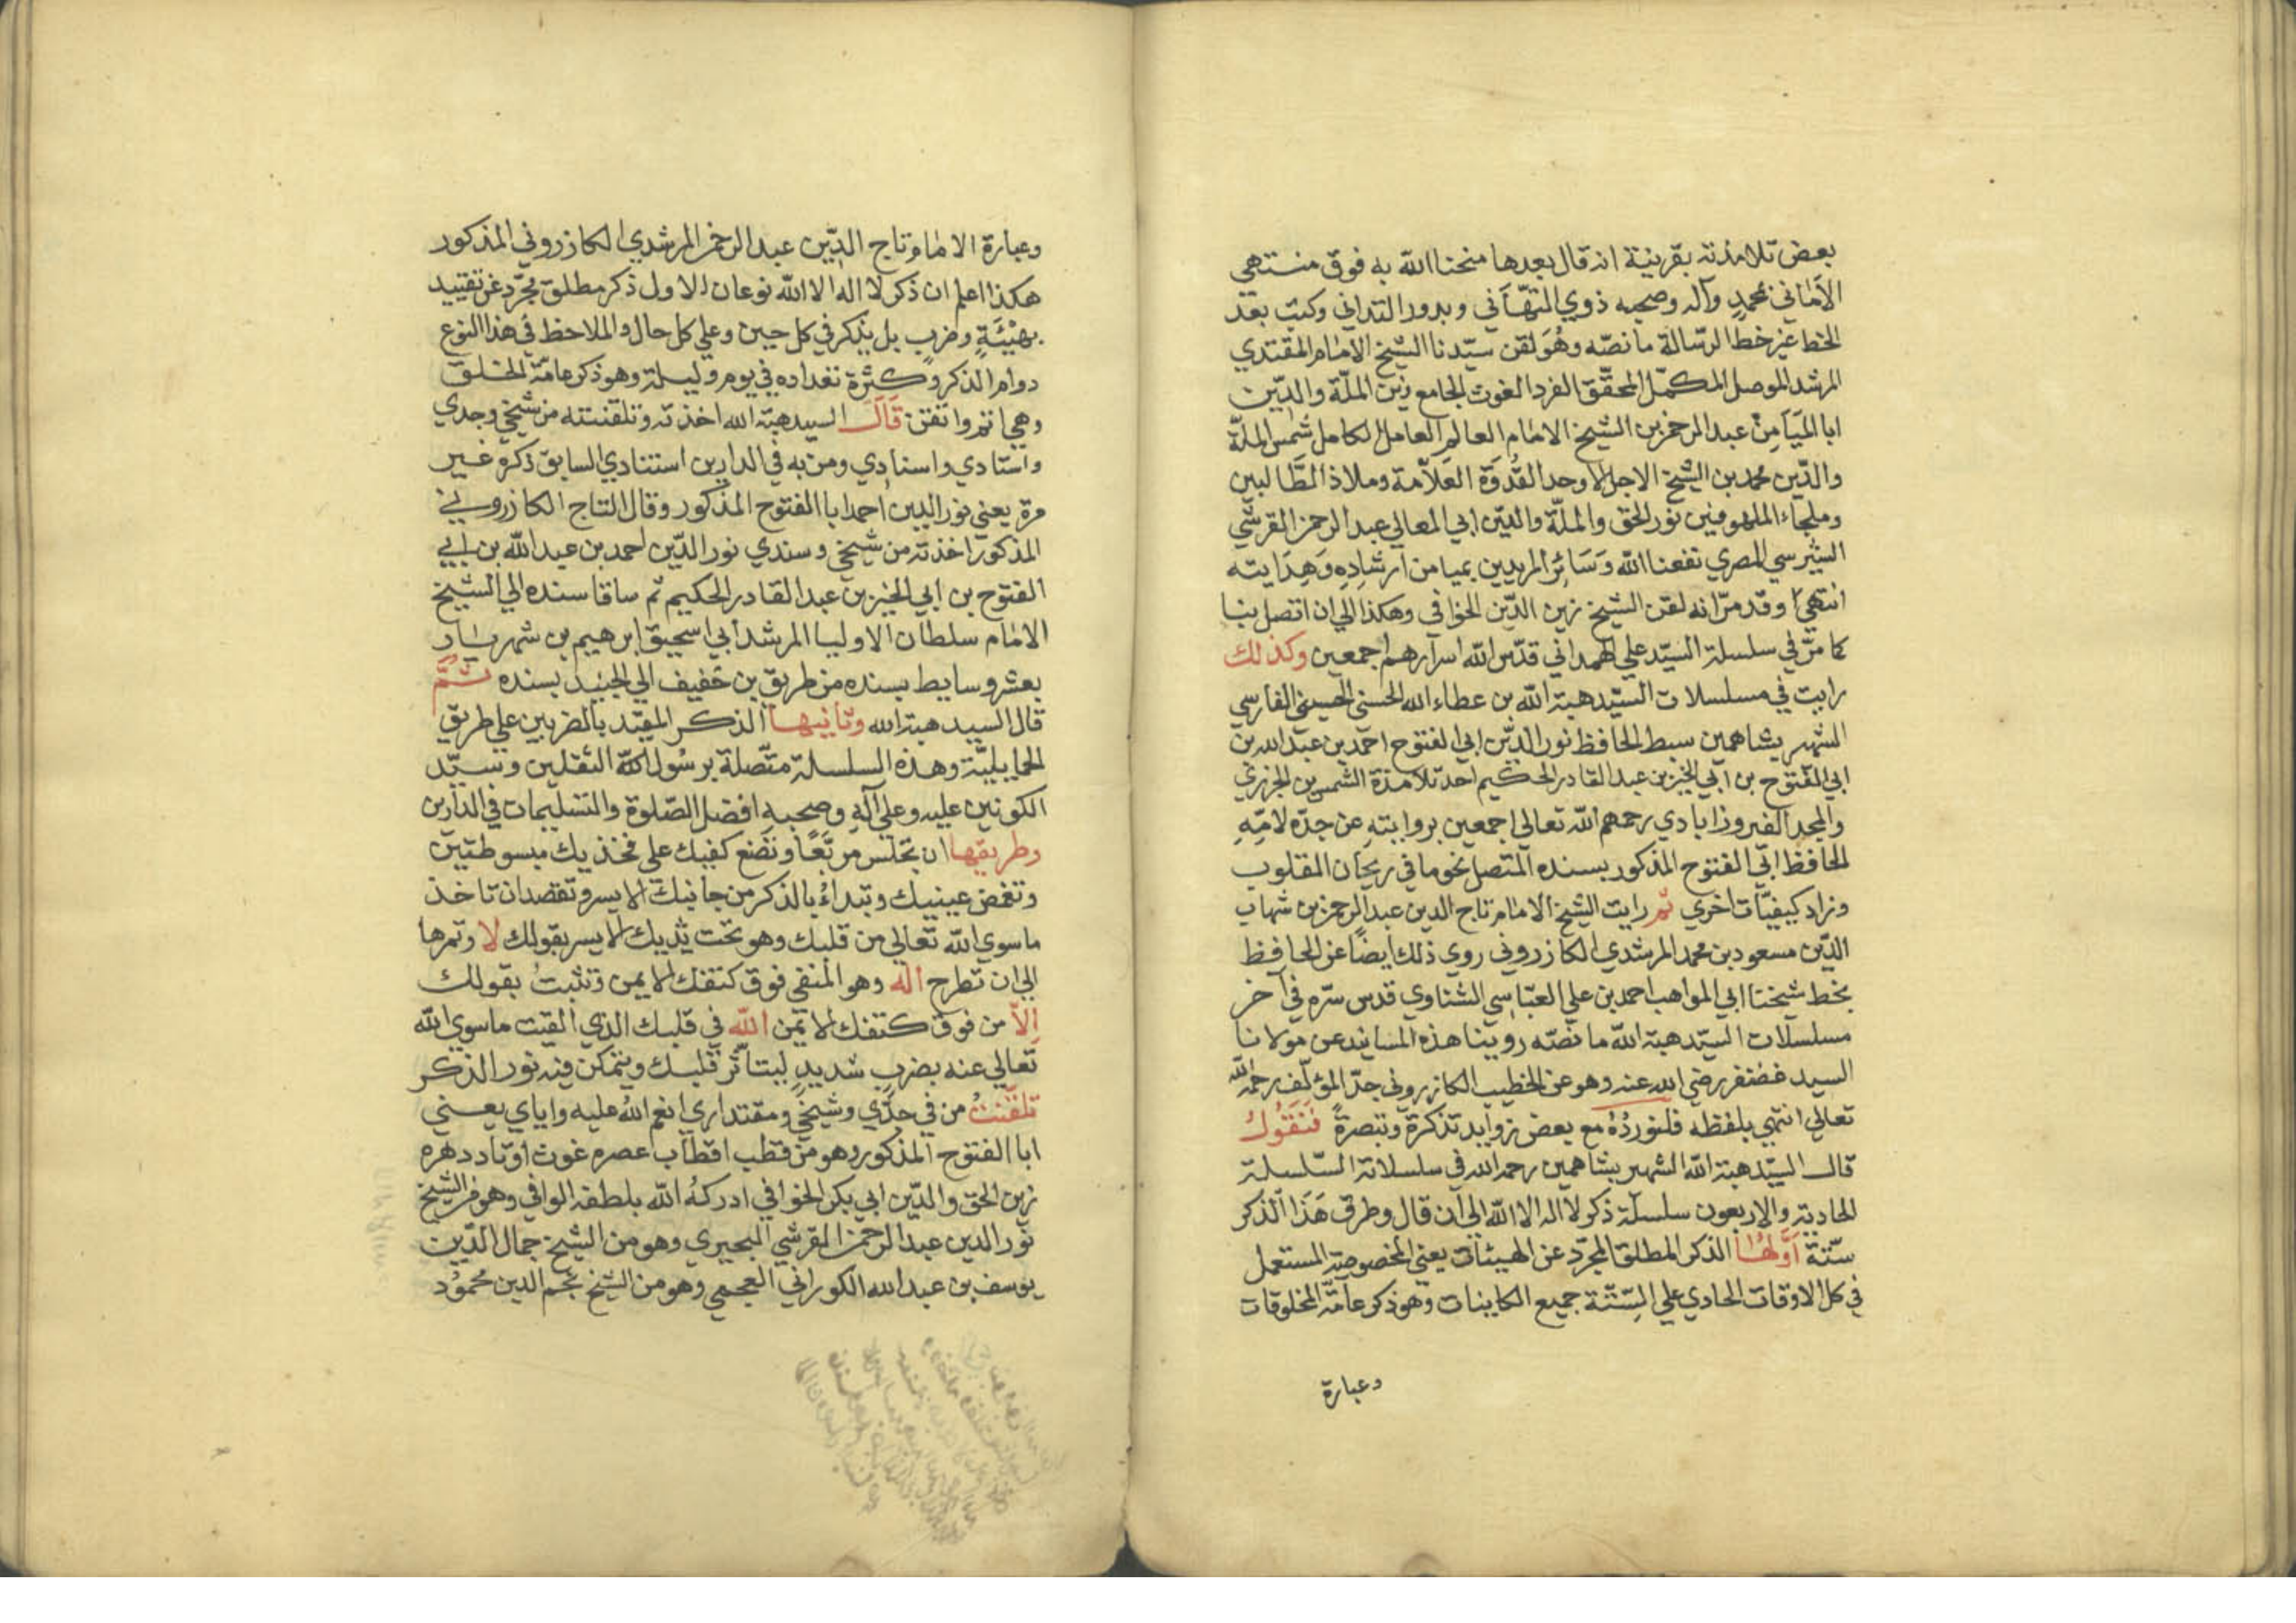 بعض تلامذته بقرينة انه قال بعدها منحنا الله به فوق منتهي
الأماني بمحمد وآله وصحبه ذوي التهاني وبدور التداني وكتب بعد
الخط غير خط الرسالة ما نصّه وهُوَ لقن سيّدنا الشيخ الامام المقتدي
المرشد الموصل المكمّل المحقّق الفرد الغوث الجامع زين الملّة والدّين
ابا الميَامِن عبد الرحمن بن الشيخ الامام العالِم العامل الكامل شمس الملّة
والدّين محمد بن الشيخ الاجل الاوحد القُدوَة العَلاّمة وملاذ الطَّالبين
وملجاء الملهوفين نور الحق والملّة والدّين ابي المعالي عبد الرحمن القرشي
الشبرسي المصري نفعنا الله وَسَائِر المريدين بميامن ارشادِه وَهِدَايته
انتهي وقد مرّ انه لقن الشيخ زين الدّين الخوافي وهكذا الي ان اتصل بنا
كما مرّ في سلسلة السيّد علي الهمداني قدّس الله اسرارهم اجمعين وكذلك
رايت في مسلسلات السيّد هبة الله بن عطاء الله الحسني الحسيني الفارسي
الشهير بشاهمين سبط الحافظ نور الدّين ابي الفتوح احمد بن عبد الله بن
ابي الفتوح بن ابي الخير بن عبد القادر الحكيم احد تلامذة الشمس بن الجزري
والمجد الفيروزابادي رحمهم الله تعالي اجمعين بروايتهِ عن جدّه لامّهِ
الحافظ ابي الفتوح المذكور بسنده المتّصل نحو ما في ريحان القلوب
وزاد كيفيّات اخري ثم رايت الشيخ الامام تاج الدين عبد الرحمن بن شهاب
الدّين مسعود بن محمد المرشدي الكازروني روي ذلك ايضًا عن الحافظ
بخط شيخنا ابي المواهب احمد بن علي العبّاسي الشناوي قدس سرّه في آخر
مسلسلات السيّد هبة الله ما نصّه روينا هذه المسانيد عن مولانا
السيد غضنفر رضي الله عنه وهو عن الخطيب الكازروني جدّ المؤلّف رحمه الله
تعالي انتهي بلفظه فلنوردُهُ مع بعض زوايد تذكرة وتبصرةً فنَقُولُ
قال السيّد هبة الله الشهير بشاهمين رحمه الله في سلسلاته السّلسلة
الحادية والاربعون سلسلة ذكر لا اله الا الله الي ان قال وطرق هَذَا الذكر
ستّة أوّلُهُا الذكر المطلق المجرّد عن الهيئات يعني المخصوصة المستعمل
في كل الاوقات الحادي علي السِّتّة جميع الكاينات وهو ذكر عامّة المخلوقات
وعبارة
وعبارة الامام تاج الدّين عبد الرحمن المرشدي الكازروني المذكور
هكذا اعلم ان ذكر لا اله الا الله نوعان الاول ذكر مطلق مجرّد عن تقييد
بهَيْئَةٍ وضربٍ بل يذكر في كل حين وعلي كل حال والملاحظ في هذا النوع
دوام الذكر وكثرة تعداده في يوم وليلة وهو ذكر عامّة الخلق
وهي اتم واتقن قَالَ السيد هبة الله اخذته وتلقنته من شيخي وجدي
واستادي واسنادي ومن به في الدارين استنادي السابق ذكره غير
مرة يعني نور الدين احمد ابا الفتوح المذكور وقال التاج الكازروني
المذكور اخذته من شيخي وسندي نور الدّين احمد بن عبد الله بن ابي
الفتوح بن ابي الخير بن عبد القادر الحكيم ثم ساقا سنده الي الشيخ
الامام سلطان الاوليا المرشد ابي اسحيق ابرهيم بن شهريار
بعشر وسايط بسنده من طريق بن خفيف الي الجنيد بسنده ثُمَّ
قال السيد هبة الله وثانيها الذكر المقيّد بالضربين علي طريق
الحمايليّة وهذه السلسلة متّصلة برسُول الله الثقلين وسيّد
الكونين عليه وعلي آلهِ وصحبه افضل الصّلوة والتسليمات في الدارين
وطريقها ان تجلس مربّعًا وتضع كفيك علي فخذيك مبسوطتين
وتغمض عينيك وتبداءُ بالذكر من جانبك الايسر وتقصد ان تاخذ
ماسوي الله تعالي من قلبك وهو تحت ثديك الايسر بقولك لا وتمرها
الي ان تطرح اله وهو المنفي فوق كتفك الايمن وتثبتُ بقولك
إلاّ من فوق كتفك الايمن الله في قلبك الذي القيت ماسوي الله
تعالي عنه بضربٍ شديدٍ ليتأثّر قلبك ويتمكن فيه نور الذكر
تلقّنتُ من في جدّي وشيخي ومقتداي انعم الله عليه واياي يعني
ابا الفتوح المذكور وهو من قطب اقطاب عصره غوث اوتاد دهره
زين الحق والدّين ابي بكر الخوافي ادركهُ الله بلطفه الوافي وهو من الشيخ
نور الدين عبد الرحمن القرشي البحيري وهو من الشيخ جمال الدّين
يوسف بن عبد الله الكوراني العجمي وهو من الشيخ نجم الدين محمُود